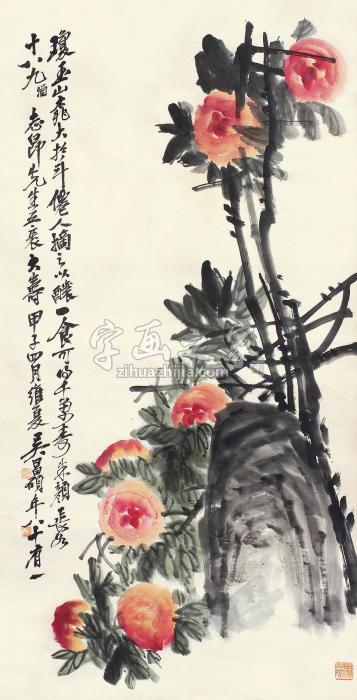 瓊玉山桃大於斗僊人摘之以釀一食可得千萬壽朱顏長如
十八九 酒 志昂先生五袠大壽 甲子四月維夏吴昌碩年八十有一
字画之家
zihuazhijia.com